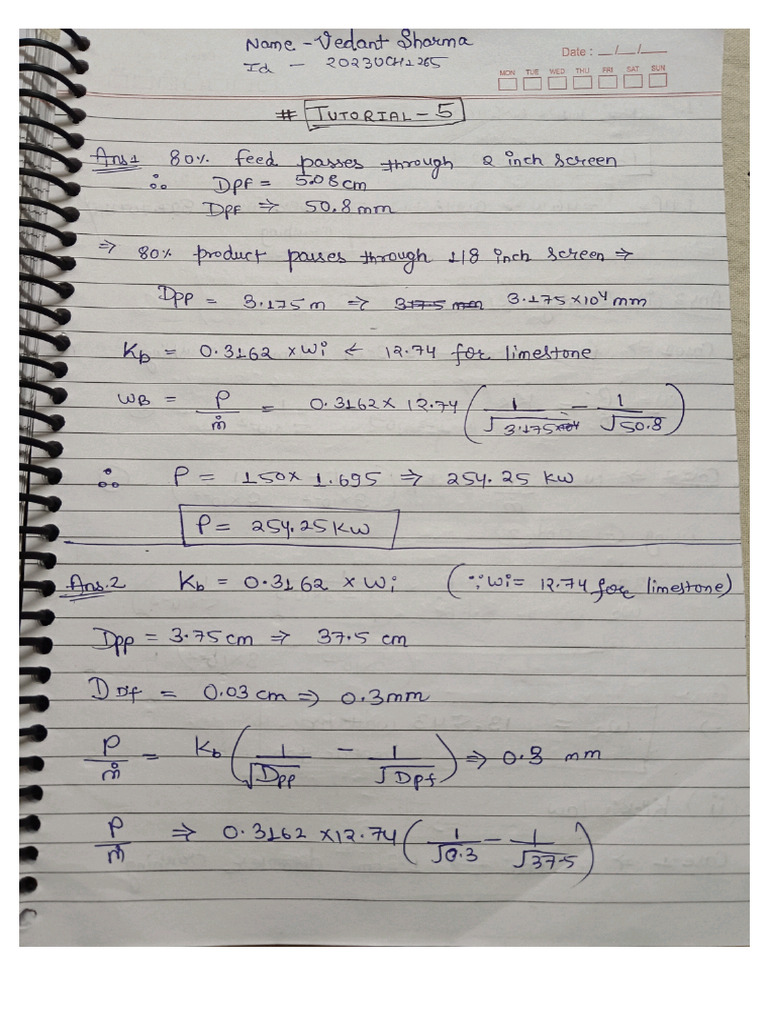 Name - Vedant Sharma
Id - 2023UCH1265
Date : __/__/__
MON TUE WED THU FRI SAT SUN
# TUTORIAL - 5
Ans1 80% feed passes through 2 inch screen
∴ DPF = 5.08 cm
DPF ⇒ 50.8 mm
⇒ 80% product passes through 1/8 inch screen ⇒
Dpp = 3.175 m ⇒ 3175 mm 3.175 x10⁴ mm
Kb = 0.3162 x Wi ← 12.74 for limestone
WB = P/ṁ = 0.3162 x 12.74 (1/√3.175x10⁴ - 1/√50.8)
∴ P = 150 x 1.695 ⇒ 254.25 KW
P = 254.25 KW
Ans.2 Kb = 0.3162 x Wi (∵ Wi = 12.74 for limestone)
Dpp = 3.75 cm ⇒ 37.5 cm
D Df = 0.03 cm ⇒ 0.3 mm
P/ṁ = Kb (1/√Dpp - 1/√Dpf) ⇒ 0.3 mm
P/ṁ ⇒ 0.3162 x 12.74 (1/√0.3 - 1/√37.5)